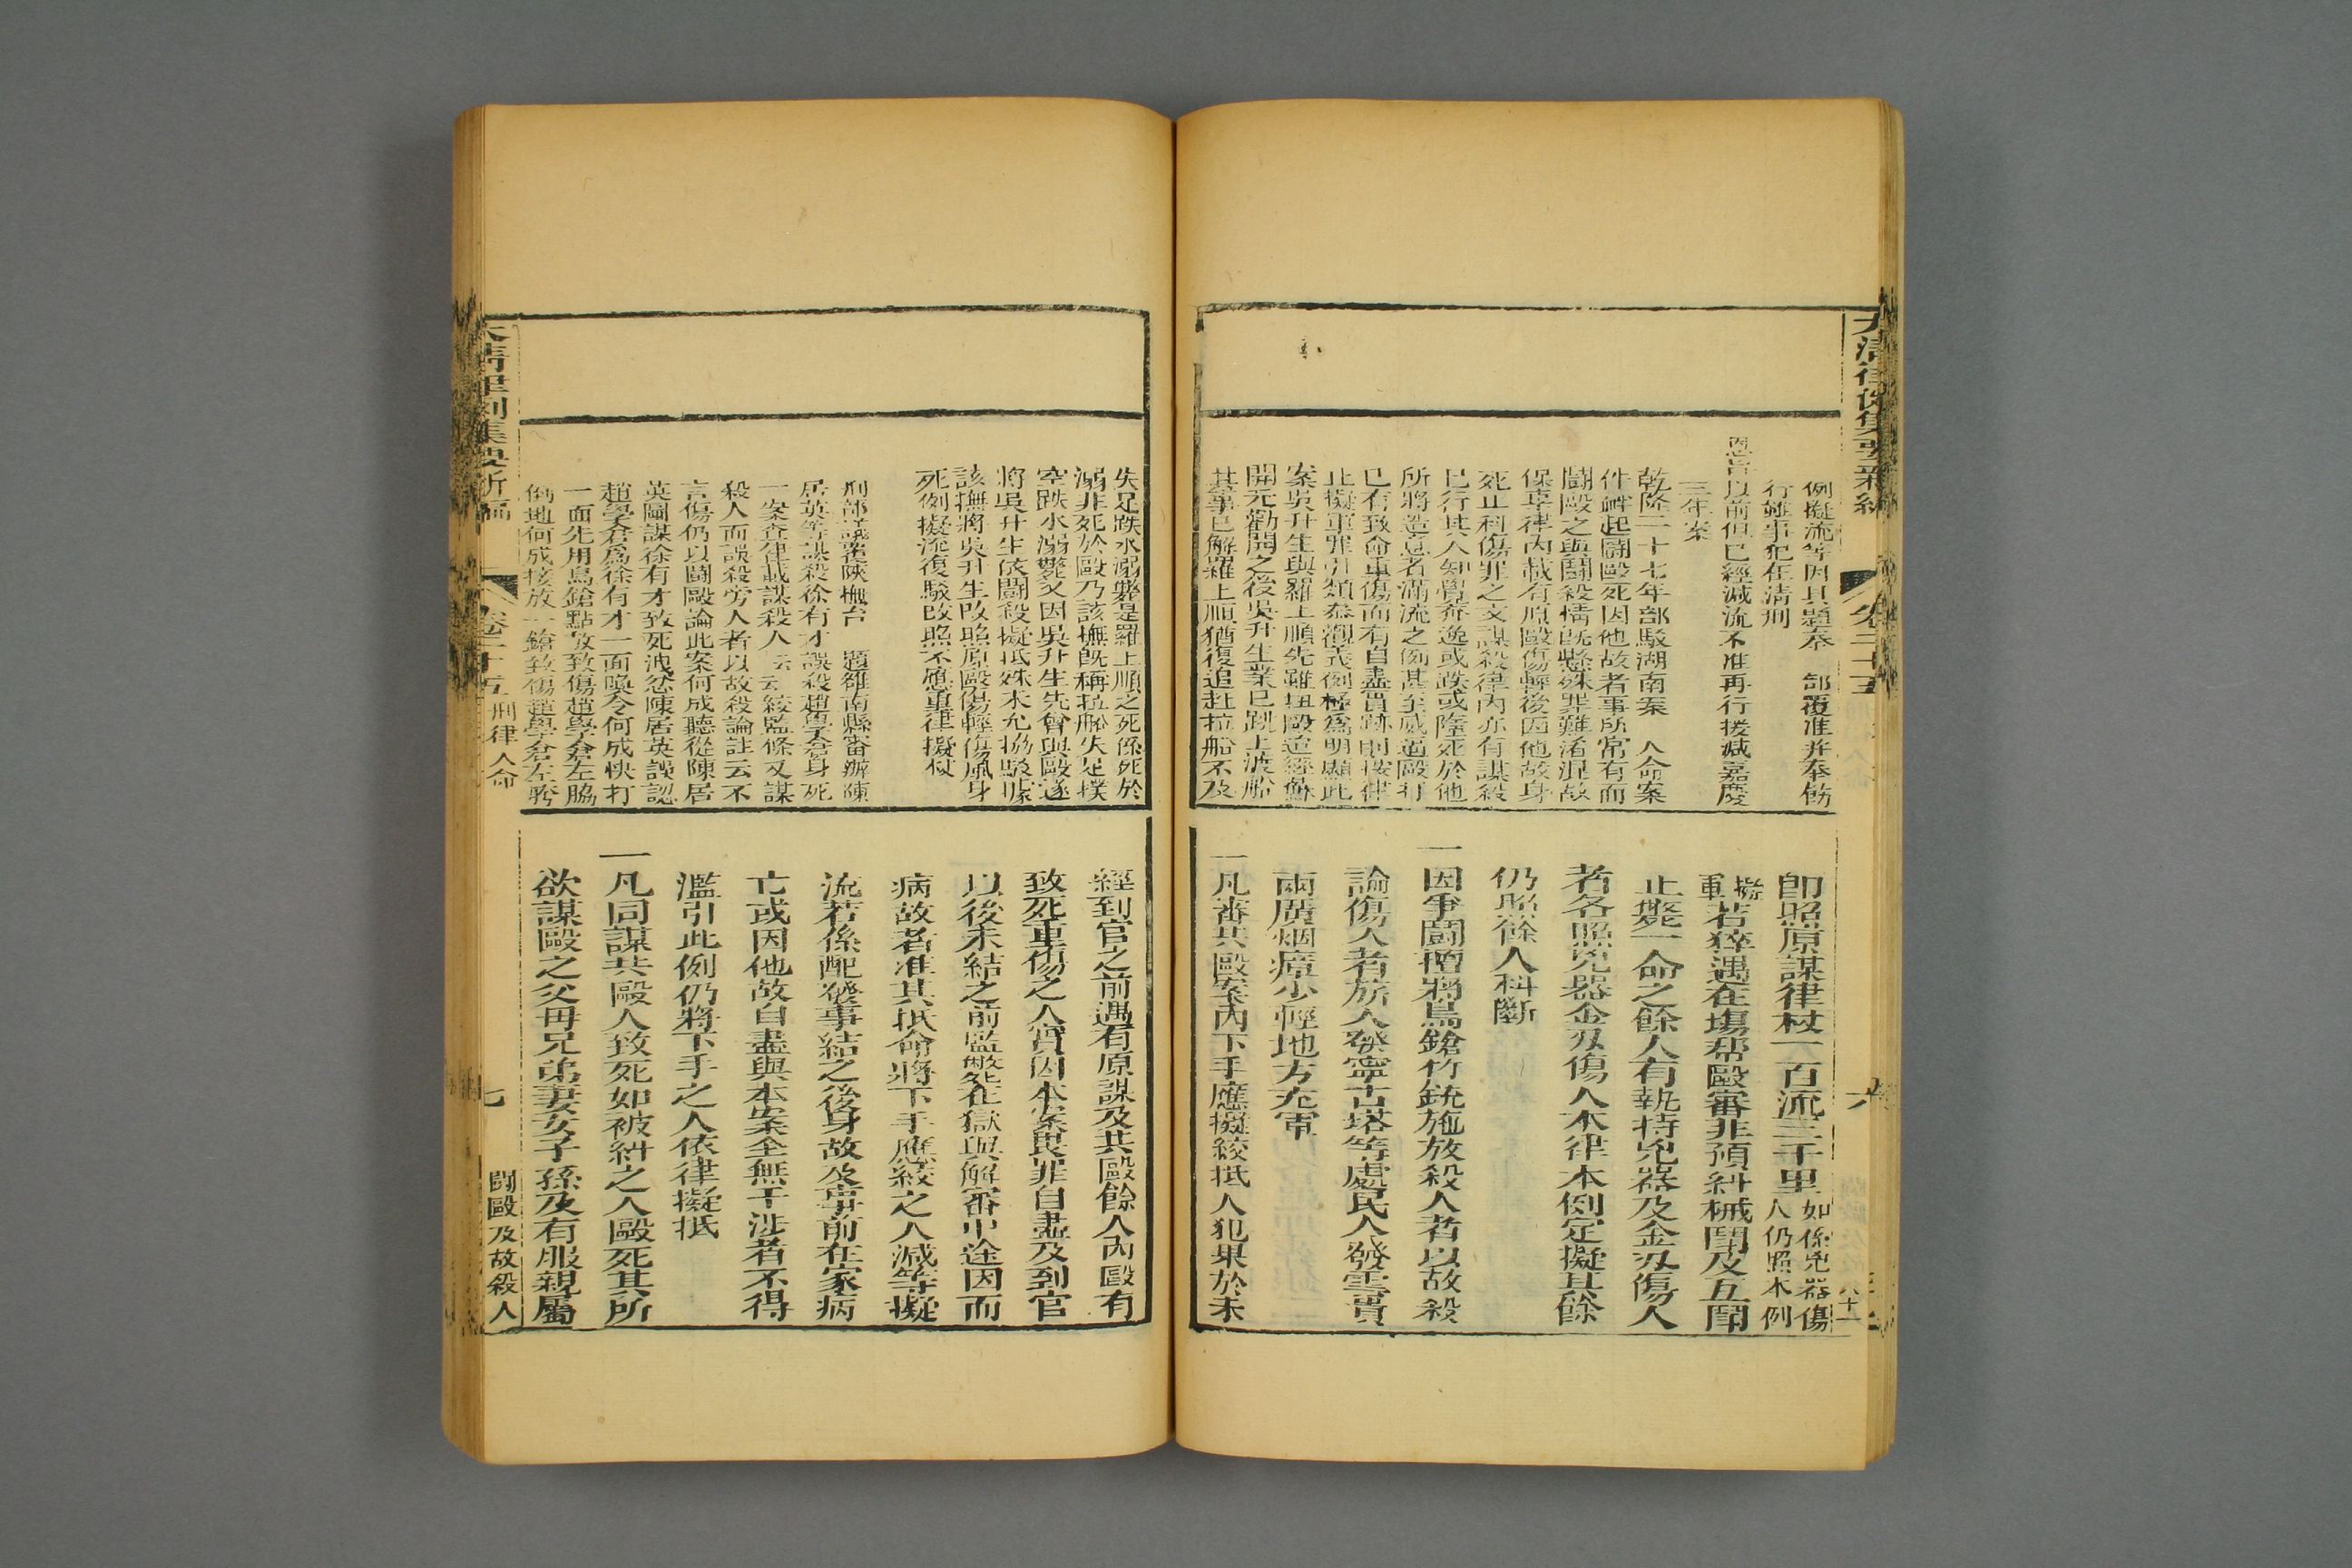 大清律例集要新編
卷二十五
六
例擬流等因具題奉　部覆准并奉飭
行雖事犯在清刑
恩旨以前但已經減流不准再行援減嘉慶
三年案
乾隆二十七年部駁湖南案　人命案
件衅起鬪毆死因他故者事所常有而
鬪毆之與鬪殺情旣懸殊罪難淆混故
保辜律內載有原毆傷輕後因他故身
死止科傷罪之文謀殺律內亦有謀殺
已行其人知覺奔逸或跌或墮死於他
所將造意者滿流之例甚至威逼毆打
已有致命重傷而有自盡實跡則按律
止擬軍罪引類叅觀義例極爲明顯此
案吳升生與羅上順先雖扭毆迨經蘇
開元勸開之後吳升生業已跳上渡船
其事已解羅上順猶復追赴拉船不及
即照原謀律杖一百流三千里如係兇器傷
人仍照本例
擬
軍若猝遇在塲帮毆審非預糾械鬪及互鬪
止斃一命之餘人有執持兇器及金刃傷人
者各照兇器金刃傷人本律本例定擬其餘
仍照餘人科斷
一因爭鬪擅將鳥鎗竹銃施放殺人者以故殺
論傷人者旂人發寧古塔等處民人發雲貴
兩廣烟瘴少輕地方充軍
一凡審共毆案內下手應擬絞抵人犯果於未
失足跌水溺斃是羅上順之死係死於
溺非死於毆乃該撫旣稱拉船失足撲
空跌水溺斃又因吳升生先會與毆遂
將吳升生依鬪殺擬抵殊未允協駁據
該撫將吳升生改照原毆傷輕傷風身
死例擬流復駁改照不應重律擬杖
刑部議覆陝撫台　題雒南縣審辦陳
居英等謀殺徐有才誤殺趙學倉身死
一案查律載謀殺人云云絞監候又謀
殺人而誤殺旁人者以故殺論註云不
言傷仍以鬪毆論此案何成聽從陳居
英圖謀徐有才致死洩忿陳居英誤認
趙學倉爲徐有才一面喚令何成快打
一面先用鳥鎗點放致傷趙學倉左脇
倒地何成接放一鎗致傷趙學倉左胯
經到官之前遇有原謀及共毆餘人內毆有
致死重傷之人實因本案畏罪自盡及到官
以後未結之前監斃在獄與解審中途因而
病故者准其抵命將下手應絞之人減等擬
流若係配發事結之後身故及事前在家病
亡或因他故自盡與本案全無干涉者不得
濫引此例仍將下手之人依律擬抵
一凡同謀共毆人致死如被糾之人毆死其所
欲謀毆之父母兄弟妻女子孫及有服親屬
大清律例集要新編
卷二十五　刑律人命
七
鬪毆及故殺人